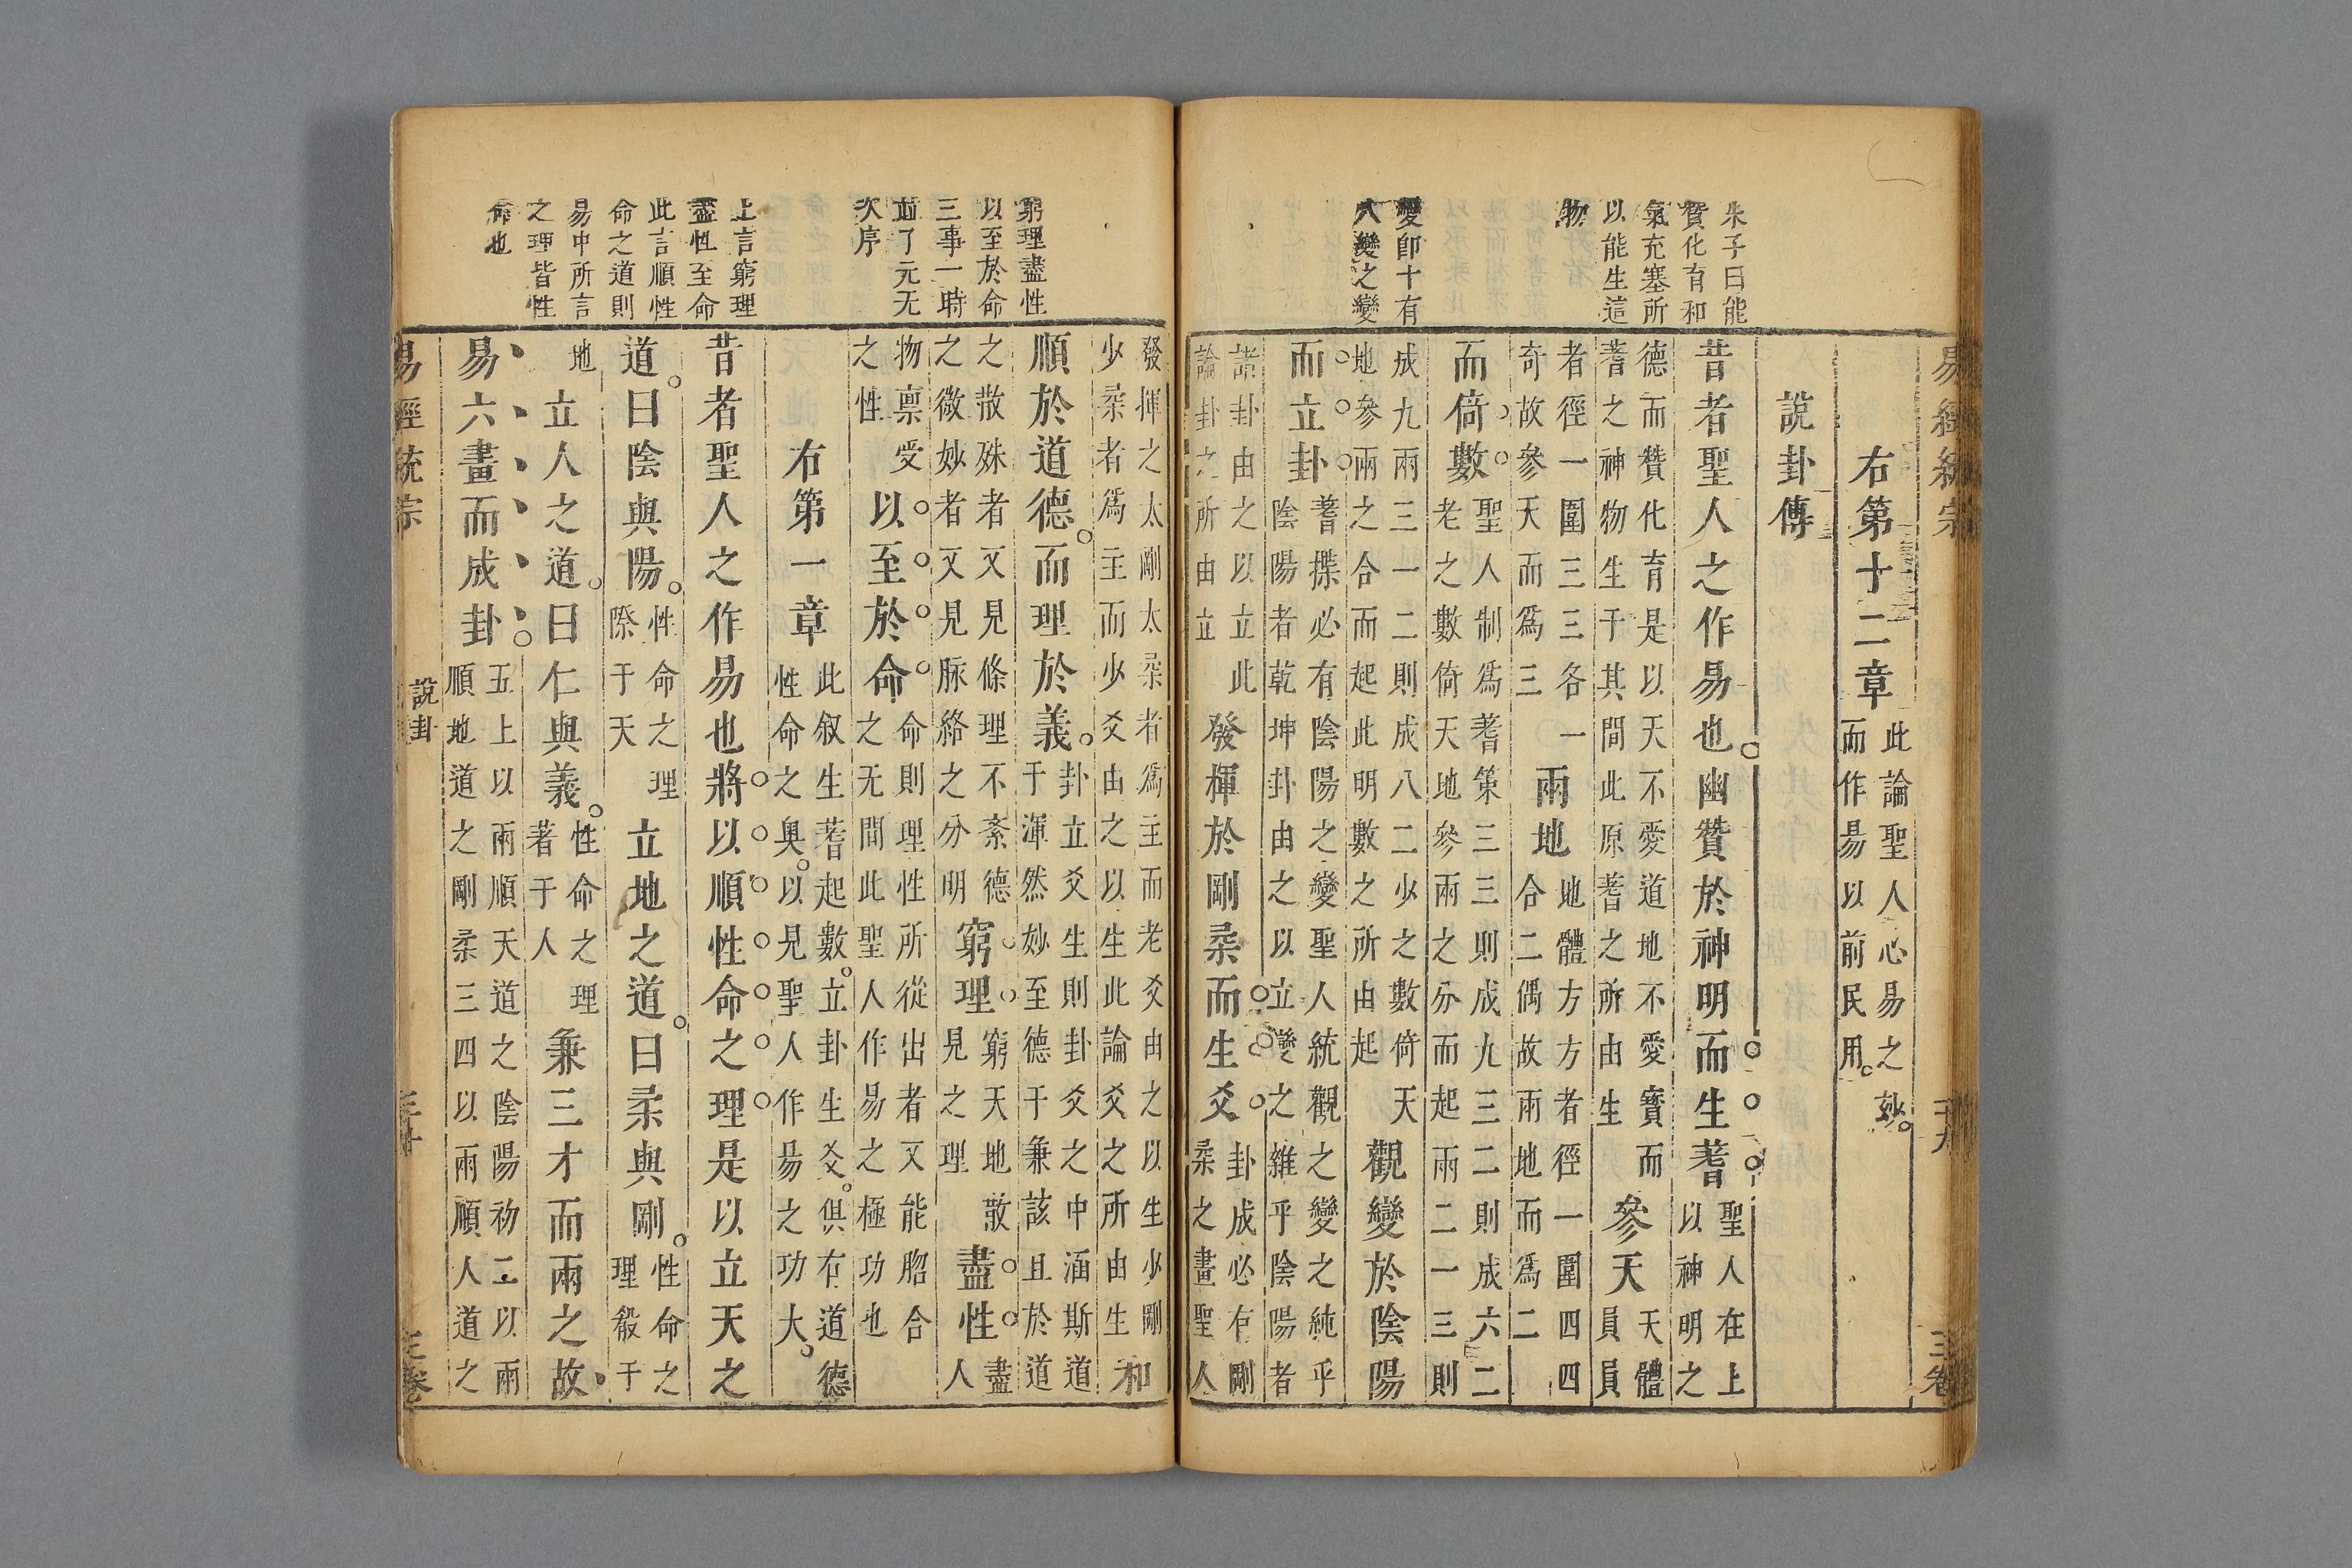 朱子曰能
贊化育和
氣充塞所
以能生這
物
變卽十有
八變之變
易經統宗
三卷
右第十二章
此論聖人心易之妙
而作易以前民用
說卦傳
昔者聖人之作易也幽贊於神明而生蓍
聖人在上
以神明之
德而贊化育是以天不愛道地不愛寶而
蓍之神物生于其間此原蓍之所由生
參天
天體
員員
者徑一圍三三各一
奇故參天而爲三
兩地
地體方方者徑一圍四四
合二偶故兩地而爲二
而倚數
聖人制爲蓍策三三三則成九三二則成六二
老之數倚天地參兩之分而起兩二一三則
成九兩三一二則成八二少之數倚天
地參兩之合而起此明數之所由起
觀變於陰陽
而立卦
蓍揲必有陰陽之變聖人統觀之變之純乎
陰陽者乾坤卦由之以立變之雜乎陰陽者
諸卦由之以立此
論卦之所由立
發揮於剛柔而生爻
卦成必有剛
柔之畫聖人
窮理盡性
以至於命
三事一時
並了元无
次序
上言窮理
盡性至命
此言順性
命之道則
易中所言
之理皆性
命也
發揮之太剛太柔者爲主而老爻由之以生少剛
少柔者爲主而少爻由之以生此論爻之所由生
和
順於道德而理於義
卦立爻生則卦爻之中涵斯道
于渾然妙至德于兼該且於道
之散殊者又見條理不紊德
之微妙者又見脉絡之分明
窮理
窮天地散
見之理
盡性
盡
人
物禀受
之性
以至於命
命則理性所從出者又能脗合
之无間此聖人作易之極功也
右第一章
此叙生蓍起數立卦生爻俱有道德
性命之奧以見聖人作易之功大
昔者聖人之作易也將以順性命之理是以立天之
道曰陰與陽
性命之理
際于天
立地之道曰柔與剛
性命之
理殽于
地
立人之道曰仁與義
性命之理
著于人
兼三才而兩之故
易六畫而成卦
五上以兩順天道之陰陽初二以兩
順地道之剛柔三四以兩順人道之
易經統宗
說卦
三十
三卷